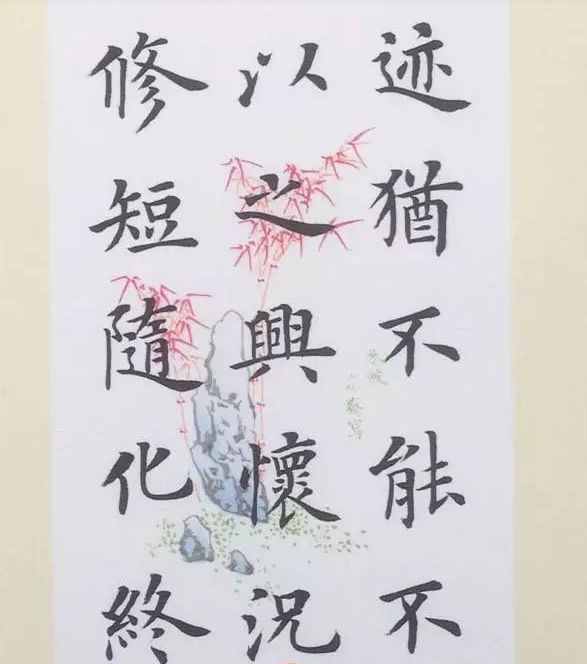 迹猶不能不
以之興懷况
修短隨化終